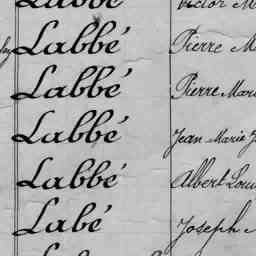 Labbé Victor M
Labbé Pierre M
Labbé Pierre Mari
Labbé Jean Marie J
Labbé Albert Loui
Labé Joseph